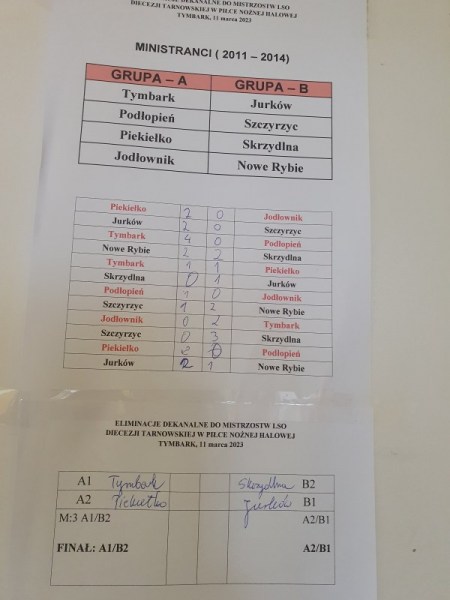 ELIMINACJE DEKANALNE DO MISTRZOSTW LSO
DIECEZJI TARNOWSKIEJ W PIŁCE NOŻNEJ HALOWEJ
TYMBARK, 11 marca 2023
MINISTRANCI ( 2011 – 2014)
GRUPA – A GRUPA – B
Tymbark Jurków
Podłopień Szczyrzyc
Piekiełko Skrzydlna
Jodłownik Nowe Rybie
Piekiełko 2 0 Jodłownik
Jurków 2 0 Szczyrzyc
Tymbark 4 0 Podłopień
Nowe Rybie 2 2 Skrzydlna
Tymbark 1 1 Piekiełko
Skrzydlna 0 1 Jurków
Podłopień 1 0 Jodłownik
Szczyrzyc 1 2 Nowe Rybie
Jodłownik 0 2 Tymbark
Szczyrzyc 0 3 Skrzydlna
Piekiełko 2 0 Podłopień
Jurków 2 1 Nowe Rybie
ELIMINACJE DEKANALNE DO MISTRZOSTW LSO
DIECEZJI TARNOWSKIEJ W PIŁCE NOŻNEJ HALOWEJ
TYMBARK, 11 marca 2023
A1 Tymbark Skrzydlna B2
A2 Piekiełko Jurków B1
M:3 A1/B2 A2/B1
FINAŁ: A1/B2 A2/B1